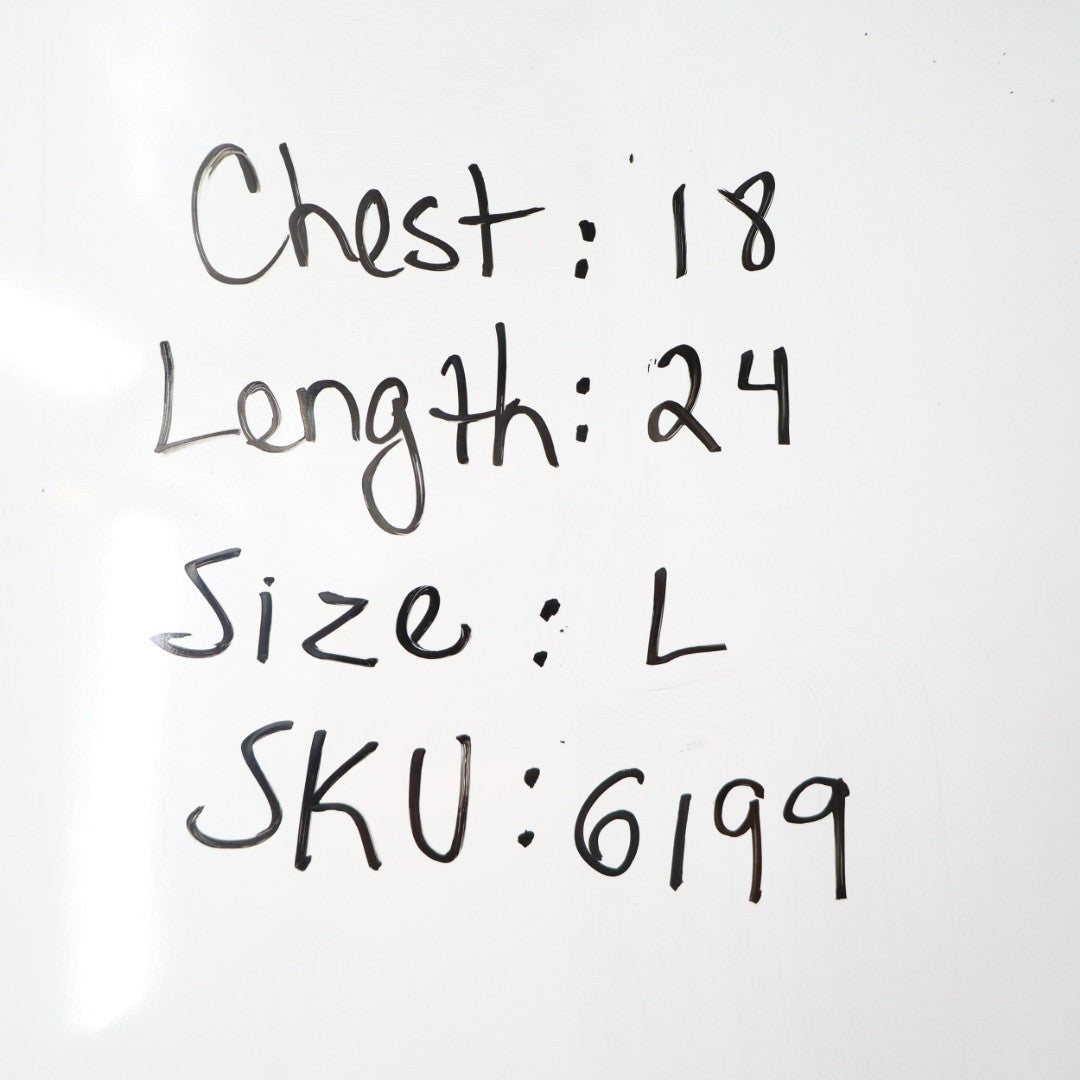 Chest: 18
Length: 24
Size: L
SKU: 6199